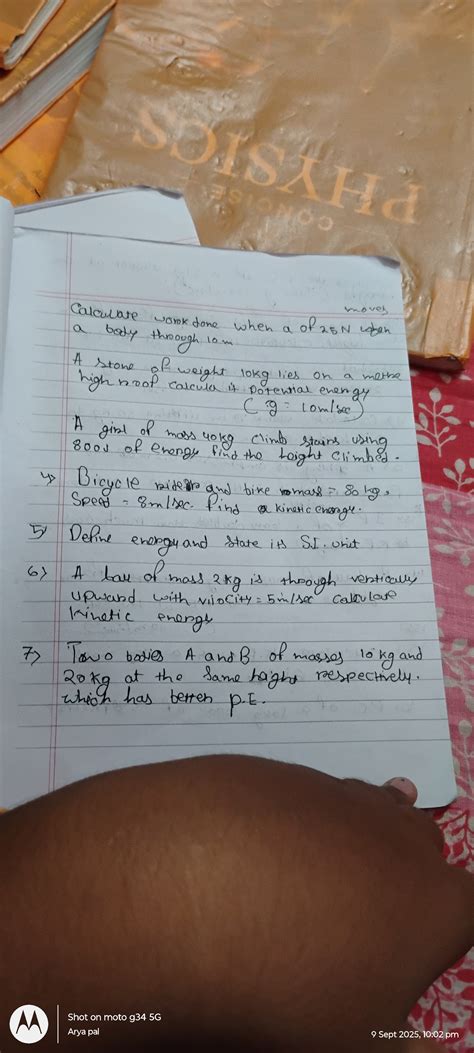 CONCISE
PHYSICS
moves
Calculate work done when a of 25N when
a body through 10m.
A stone of weight 10kg lies on a metre
high roof calcula it potential energy
(g = 10m/sec)
A girl of mass 40kg climb stairs using
800J of energy find the height climbed.
4) Bicycle rider and bike mass = 80 kg,
Speed = 8m/sec. find a kinetic energy.
5) Define energy and state its S.I. unit
6) A ball of mass 2kg is through vertically
upward with vilocity = 5m/sec calculate
Kinetic energy
7) Two bodies A and B of masses 10 kg and
20kg at the same height respectively.
which has better P.E.
Shot on moto g34 5G
Arya pal
9 Sept 2025, 10:02 pm